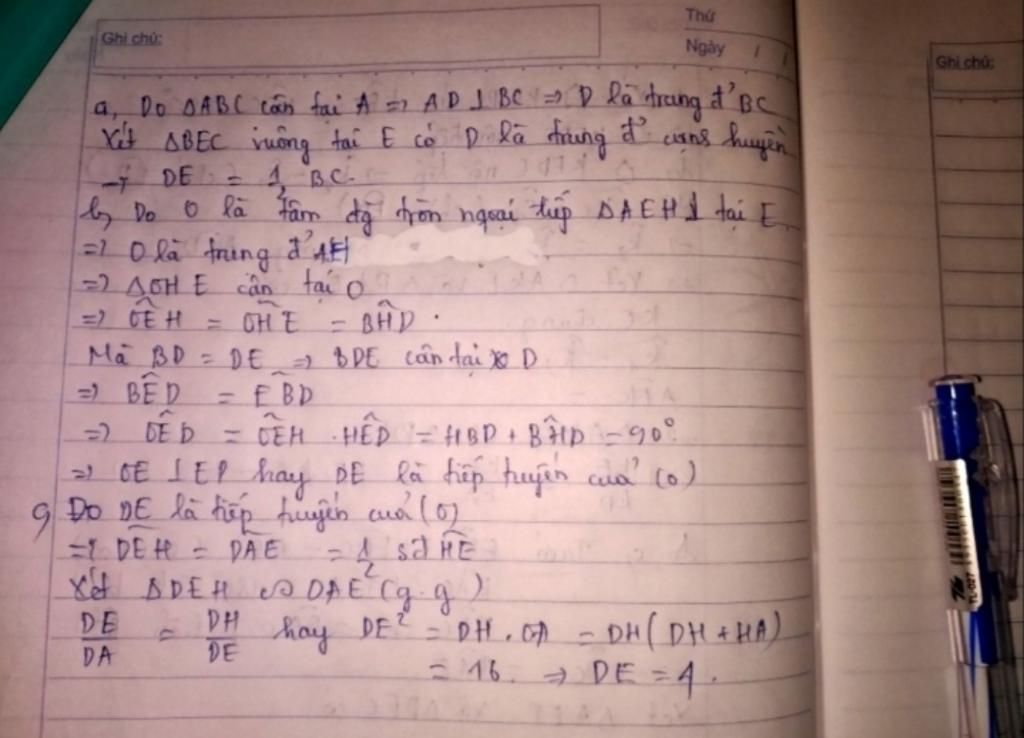 Ghi chú:
Thứ
Ngày / /
Ghi chú:
a, Do ΔABC cân tại A => AD ⊥ BC => D là trung đ' BC
Xét ΔBEC vuông tại E có D là trung đ' cạnh huyền
→ DE = 1/2 BC.
b, Do O là tâm đg tròn ngoại tiếp ΔAEH ⊥ tại E
=> O là trung đ' AH
=> ΔOHE cân tại O
=> ÔEH = OĤE = BĤD.
Mà BD = DE => BDE cân tại D
=> BÊD = EBD
=> OÊD = OÊH . HÊD = HBD + BĤD = 90°
=> OE ⊥ ED hay DE là tiếp tuyến của (O)
c, Do DE là tiếp tuyến của (O)
=> DEH = DAE = 1/2 sđ HE
Xét ΔDEH ∽ DAE (g.g)
DE/DA = DH/DE hay DE² = DH . DA = DH(DH + HA)
= 16. => DE = 4.
TL-027